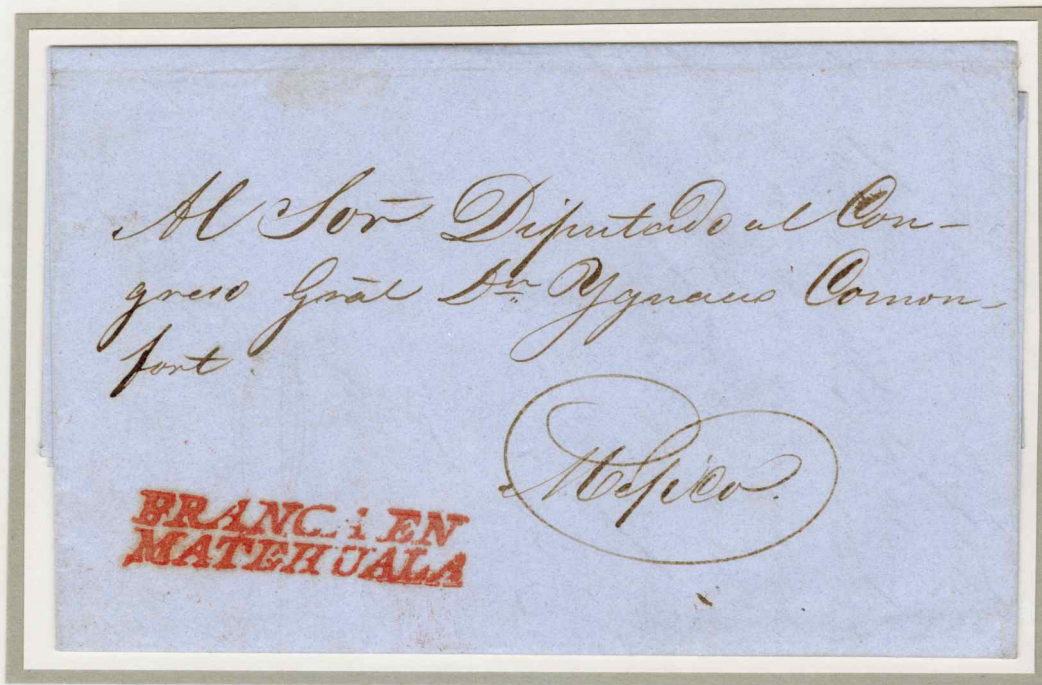 Al Sor̄ Diputado al Con-
greso Grāl Dn Ygnacio Comon-
fort.
Mejico.
FRANCA EN
MATEHUALA